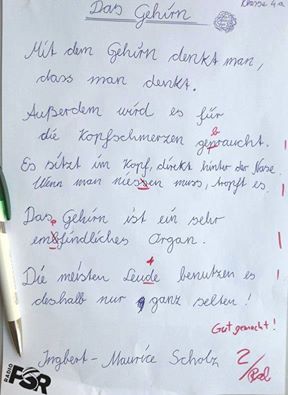 Klasse 4a
Das Gehirn
Mit dem Gehirn denkt man,
dass man denkt.
Außerdem wird es für
die Kopfschmerzen gepraucht.
b
Es sitzt im Kopf, direkt hinter der Nase.
Wenn man niessen muss, tropft es.
Das Gehirn ist ein sehr
p
emfindliches Organ.
Die meisten Leude benutzen es
t
deshalb nur ganz selten!
Gut gemacht!
Ingbert-Maurice Scholz
2/
RADIO
FSR